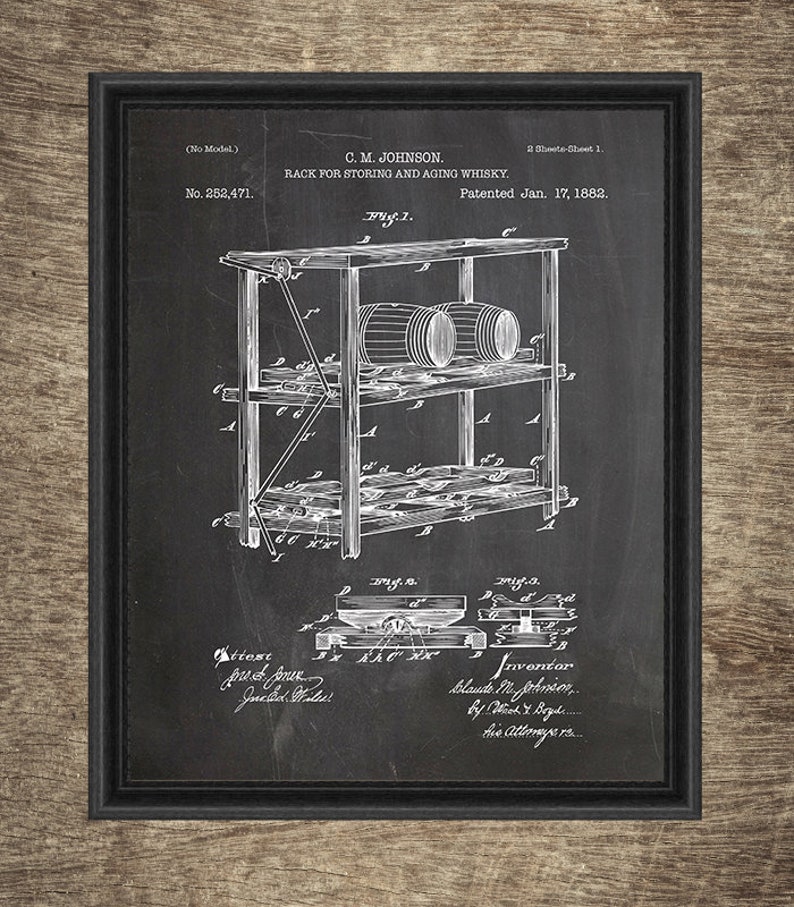 (No Model.)
2 Sheets-Sheet 1.
C. M. JOHNSON.
RACK FOR STORING AND AGING WHISKY.
No. 252,471.
Patented Jan. 17, 1882.
Fig. 1.
B
C''
C'
B
K
J
I''
B
C''
D
d
d'
D
C
C
G
B
A
I'
A
A
A
D
d'
d''
D
C''
C
G
C
H'
H''
B
I
Fig. 2.
Fig. 3.
D
d''
D
d'
d
G
F
B
H
h
h
C'
H'
B
B
Attest
Inventor
Claude M. Johnson,
by Wood & Boyd
his Attorneys